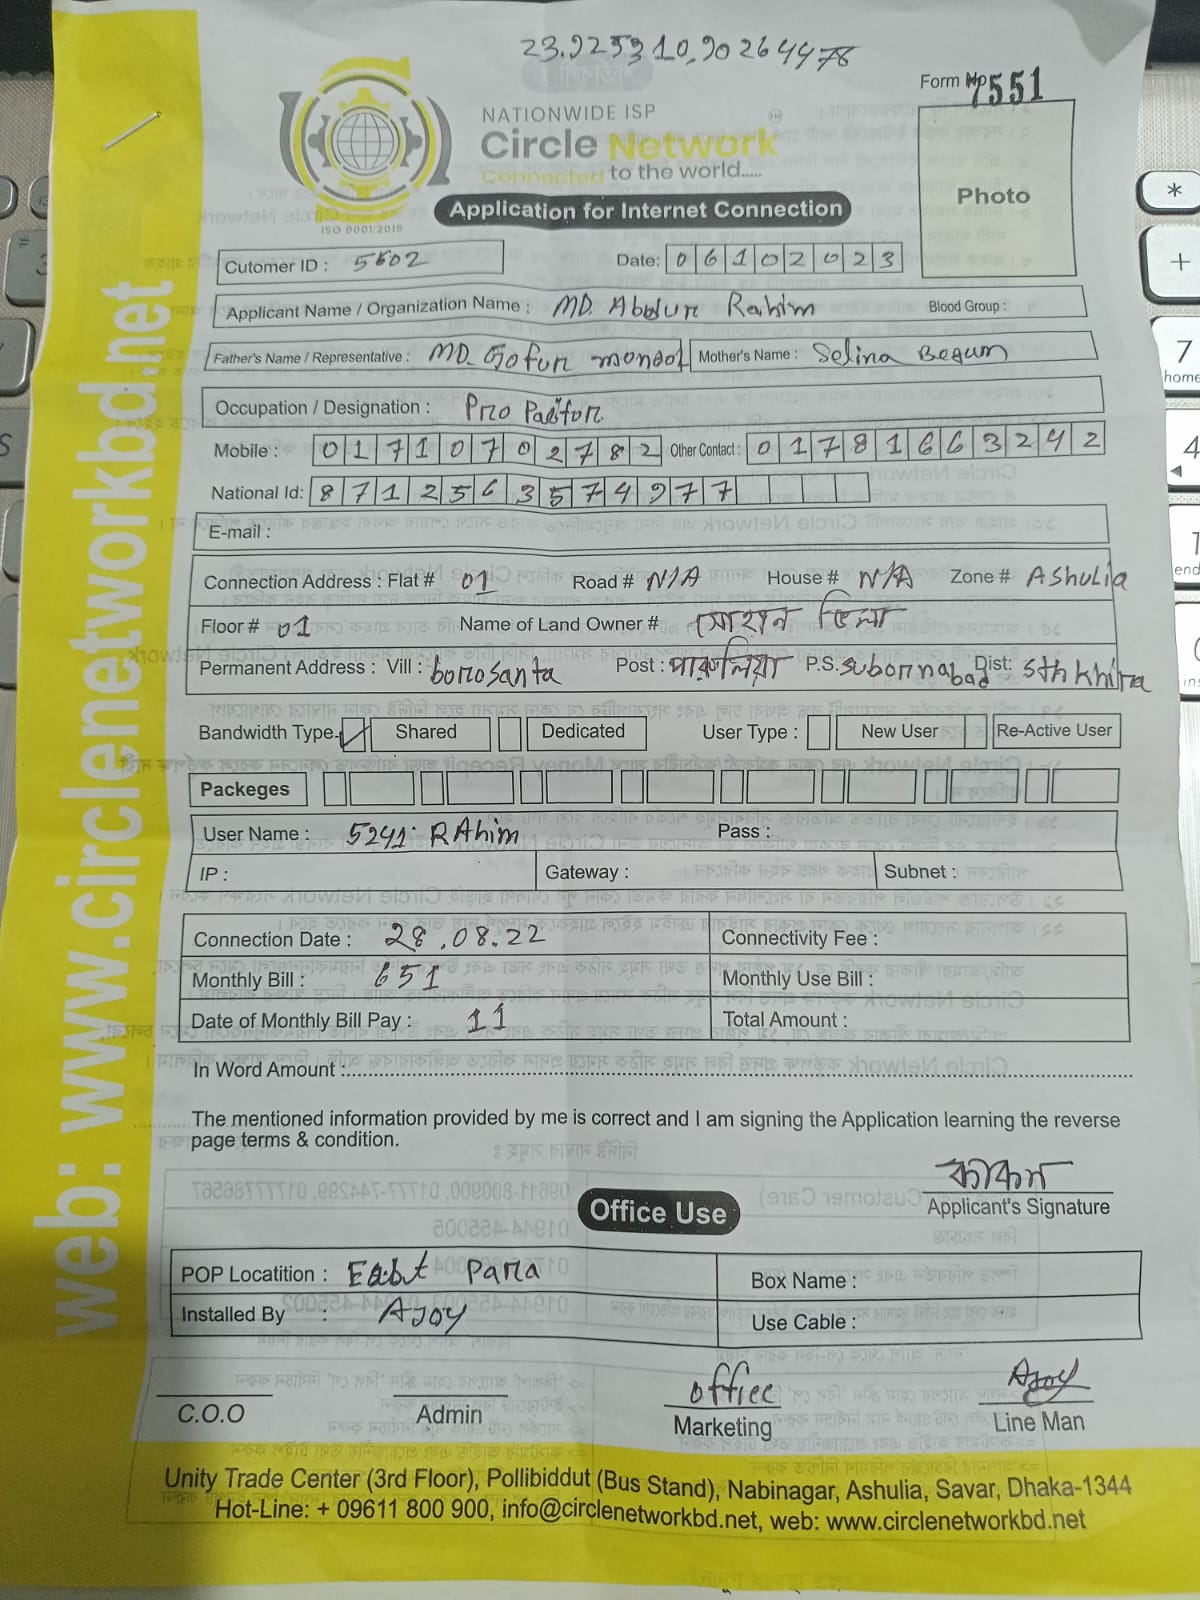 23.925310,90264478
Form No 7551
NATIONWIDE ISP
Circle Network TM
Connected to the world.....
ISO 9001:2015
Application for Internet Connection
Photo
Cutomer ID : 5602 Date: 06102023
Applicant Name / Organization Name : MD. Abdur Rahim Blood Group :
Father's Name / Representative : MD. Gofur mondol Mother's Name : Selina Begum
Occupation / Designation :
Mobile : 01710702782 Other Contact : 01781663242
National Id: 8712563574977
E-mail :
Connection Address : Flat # 01 Road # N/A House # N/A Zone # AShulia
Floor # 01 Name of Land Owner # সোহান ভিলা
Permanent Address : Vill : borosanta Post : পারুলিয়া P.S. subornabad Dist: Sthkhira
Bandwidth Type- Shared Dedicated User Type : New User Re-Active User
Packeges
User Name : 5241. RAhim Pass :
IP : Gateway : Subnet :
Connection Date : 28.08.22 Connectivity Fee :
Monthly Bill : 651 Monthly Use Bill :
Date of Monthly Bill Pay : 11 Total Amount :
In Word Amount :
The mentioned information provided by me is correct and I am signing the Application learning the reverse
page terms & condition.
Applicant's Signature
Office Use
POP Locatition : Para Box Name :
Installed By : AJoy Use Cable :
office AJoy
C.O.O Admin Marketing Line Man
Unity Trade Center (3rd Floor), Pollibiddut (Bus Stand), Nabinagar, Ashulia, Savar, Dhaka-1344
Hot-Line: + 09611 800 900, info@circlenetworkbd.net, web: www.circlenetworkbd.net
web: www.circlenetworkbd.net